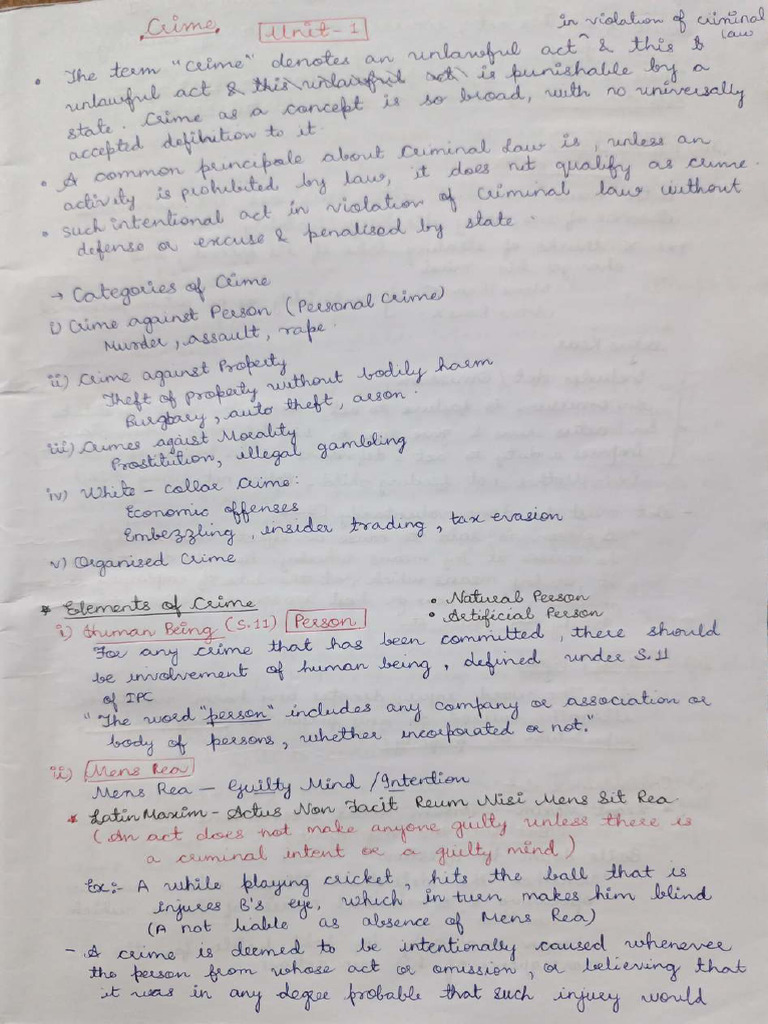 Crime Unit-1
in violation of criminal law
• The term "crime" denotes an unlawful act ^ & this
unlawful act & this unlawful act is punishable by a
state. Crime as a concept is so broad, with no universally
accepted definition to it.
• A common principale about Criminal Law is, unless an
activity is prohibited by law, it does not qualify as crime.
• Such intentional act in violation of criminal law without
defense or excuse & penalised by state.
→ Categories of Crime
i) Crime against Person (Personal Crime)
Murder, assault, rape.
ii) Crime against Property
Theft of property without bodily harm
Burglary, auto theft, arson.
iii) Crimes against Morality
Prostitution, illegal gambling
iv) White-collar Crime:
Economic offenses
Embezzling, insider trading, tax evasion
v) Organised Crime
* Elements of Crime
• Natural Person
• Artificial Person
i) Human Being (S.11) Person
For any crime that has been committed, there should
be involvement of human being, defined under S.11
of IPC
"The word "person" includes any company or association or
body of persons, whether incorporated or not."
ii) Mens Rea
Mens Rea — Guilty Mind / Intention
* Latin Maxim - Actus Non Facit Reum Nisi Mens Sit Rea
(An act does not make anyone guilty unless there is
a criminal intent or a guilty mind)
Ex:- A while playing cricket, hits the ball that is
injures B's eye, which in turn makes him blind
(A not liable as absence of Mens Rea)
- A crime is deemed to be intentionally caused whenever
the person from whose act or omission, or believing that
it was in any degree probable that such injury would